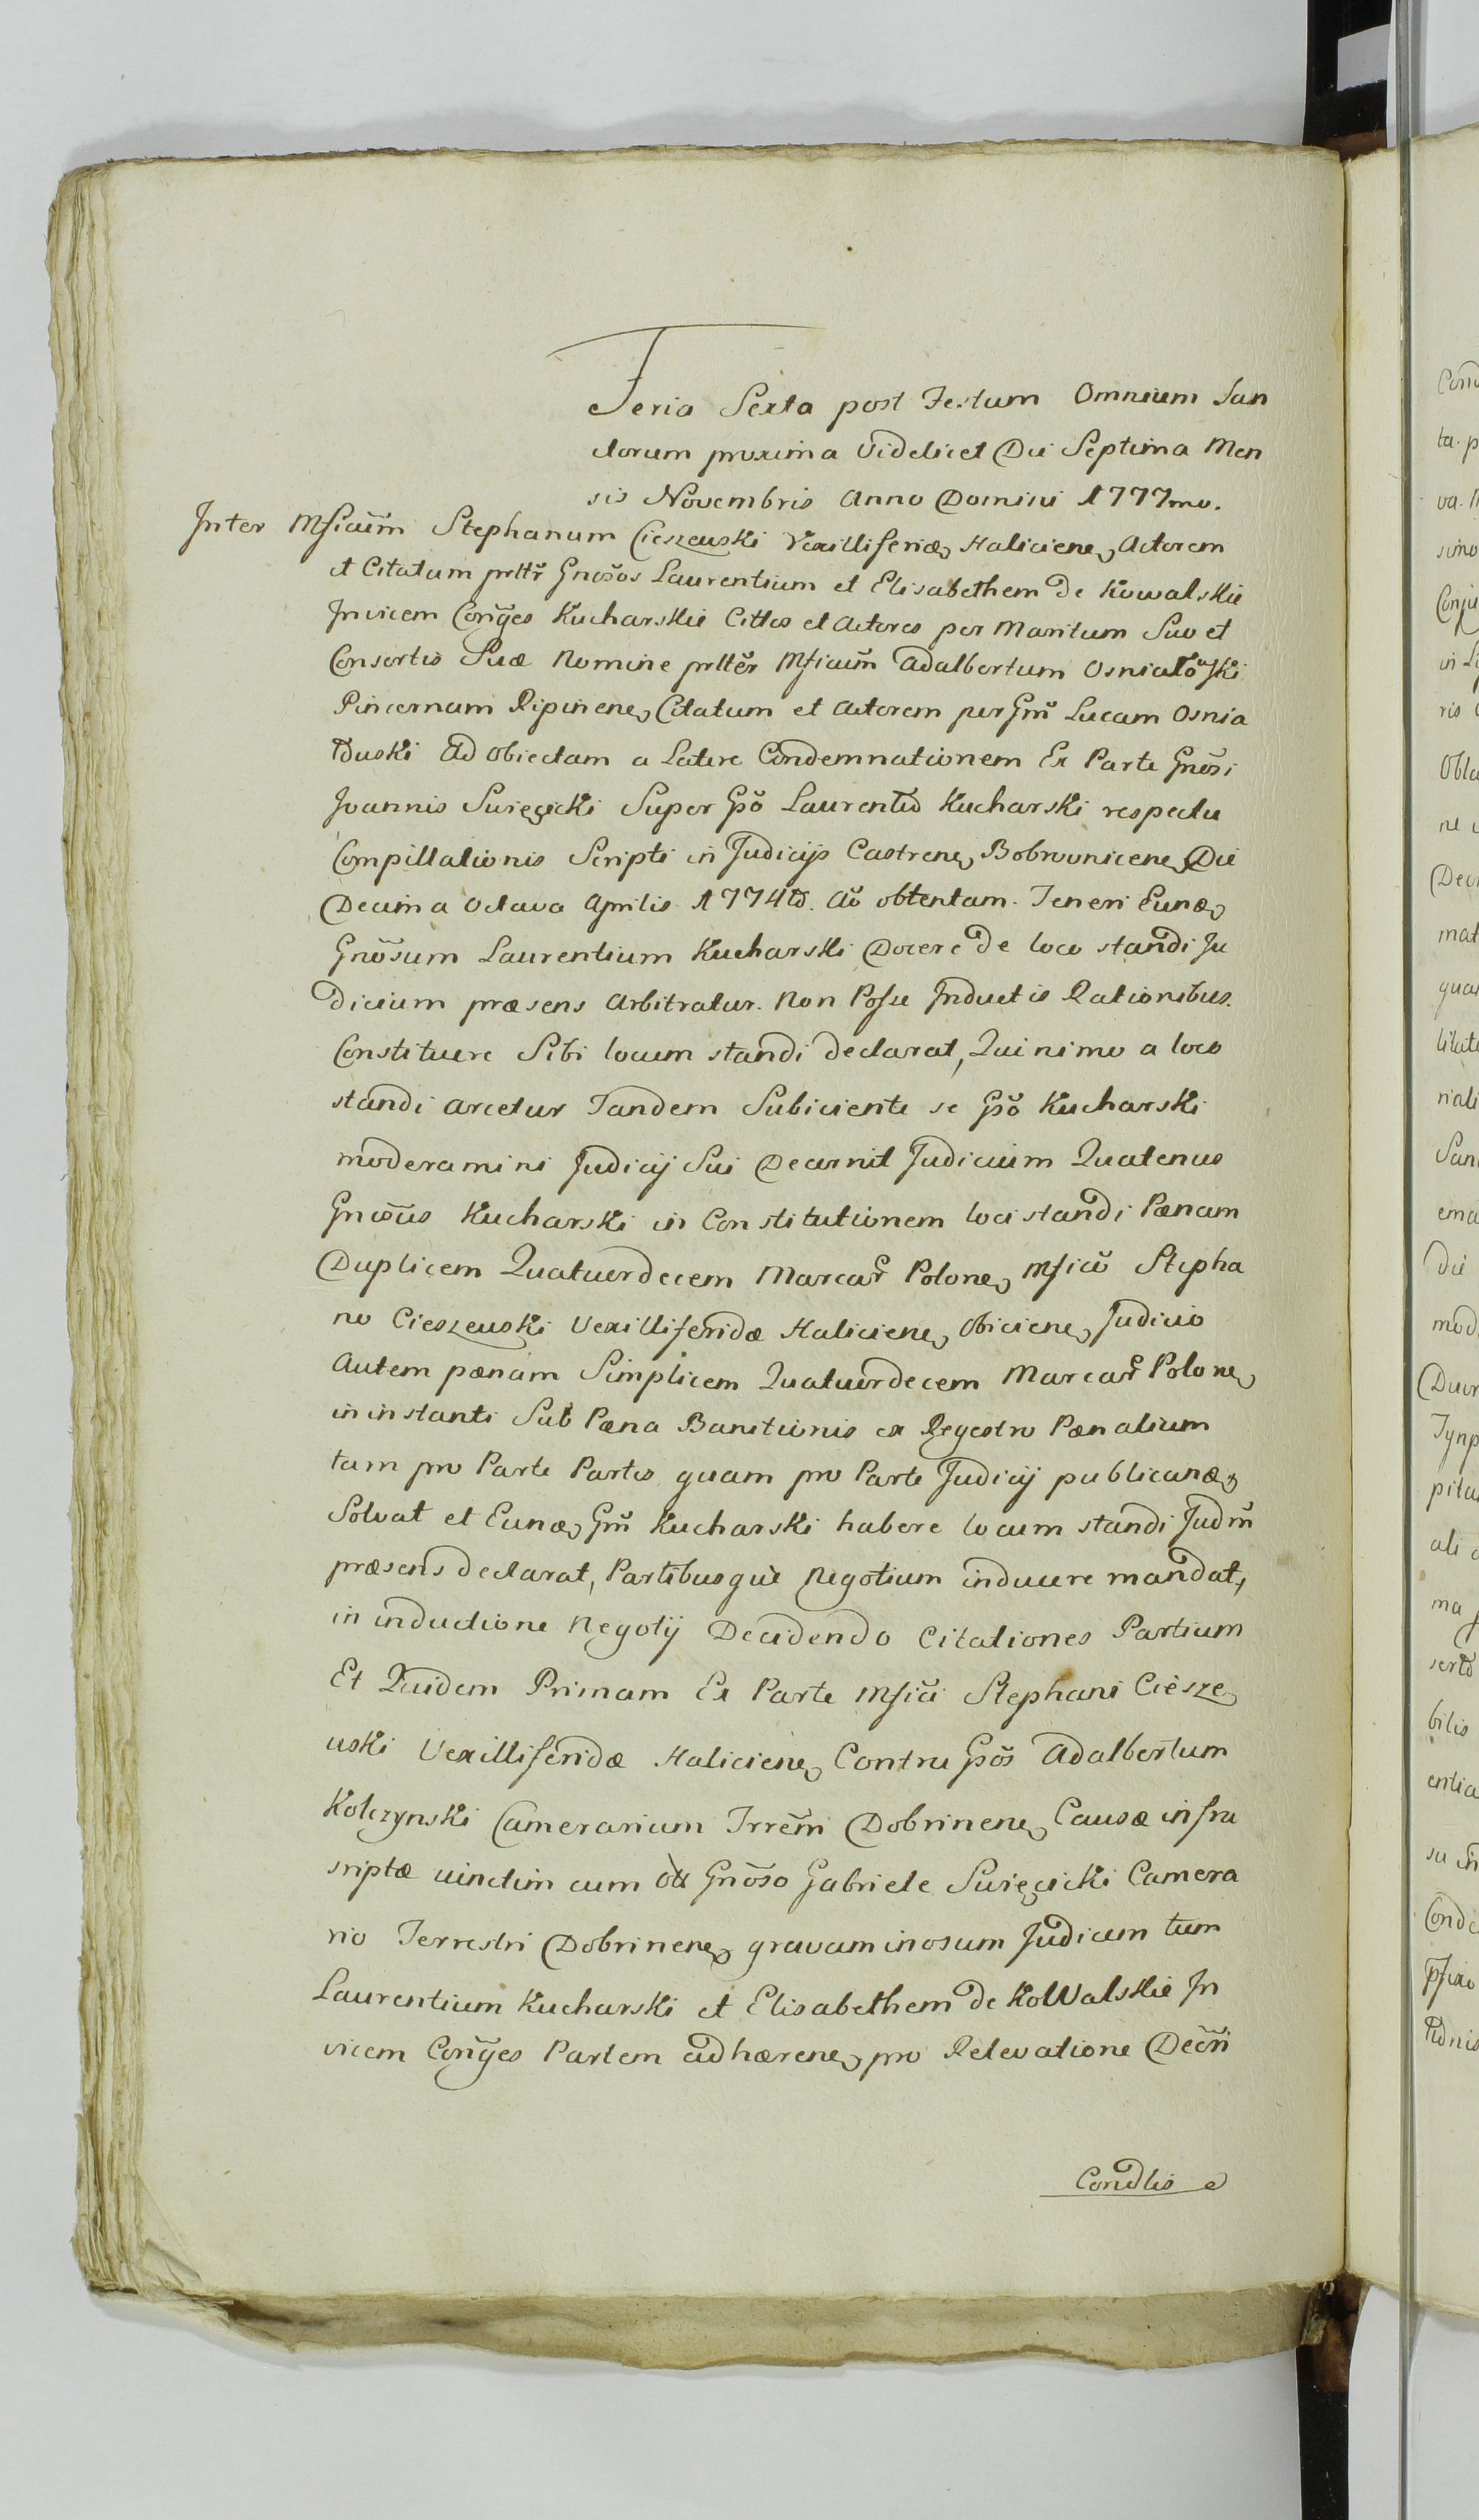 Feria Sexta post Festum Omnium San
ctorum proxima Videlicet Die Septima Men
sis Novembris Anno Domini 1777mo.
Inter Mficum Stephanum Cieszewski Vexilliferidæ Haliciene, Actorem
et Citatum Gnosos Laurentium et Elisabethem de Kowalskie
Invicem Conges Kucharskie Cittos et Actores per Maritum Suo et
Consortis Suæ Nomine Mficum Adalbertum Osniałowski
Pincernam Ripinene, Citatum et Actorem per Gm Lucam Osnia
łowski Ad obiectam a Latere Condemnationem Ex Parte Gnosi
Joannis Swięcicki Super Gso Laurentio Kucharski respectu
Compillationis Scripti in Judicijs Castrene, Bobrownicene, Die
Decima Octava Aprilis 1774to. Ao obtentam. Teneri Eunde,
Gnosum Laurentium Kucharski Docere de loco standi Ju
dicium præsens Arbitratur. Non Posse Inductis Rationibus.
Constituere Sibi locum standi declarat, Quinimo a loco
standi arcetur Tandem Subiciente se Gso Kucharski
moderamini Judicij Sui Decernit Judicium Quatenus
Gnosus Kucharski in Constitutionem loci standi Pænam
Duplicem Quatuordecem Marcar Polone, Mfico Stepha
no Cieszewski Vexilliferidæ Haliciene, Obiciene, Judicio
Autem pænam Simplicem Quatuordecem Marcar Polone,
in instanti Sub Pæna Banitionis ex Regestro Pænalium
tam pro Parte Partis quam pro Parte Judicij publicandæ,
Solvat et Eundæ, Gm Kucharski habere locum standi Judm
præsens declarat, Partibusque Negotium inducere mandat,
in inductione Negotij Decidendo Citationes Partium
Et Quidem Primam Ex Parte Mfici Stephani Ciesze
wski Vexilliferidæ Haliciene, Contra Gsos Adalbertum
Kolczynski Camerarium Trrem Dobrinene, Causæ infra
scriptæ vinctim cum Gnoso Gabriele Swięcicki Camera
rio Terrestri Dobrinene, gravaminosum Judicem tum
Laurentium Kucharski et Elisabethem de KoWalskie In
vicem Conges Partem adhærene, pro Relevatione Decri
Condlis